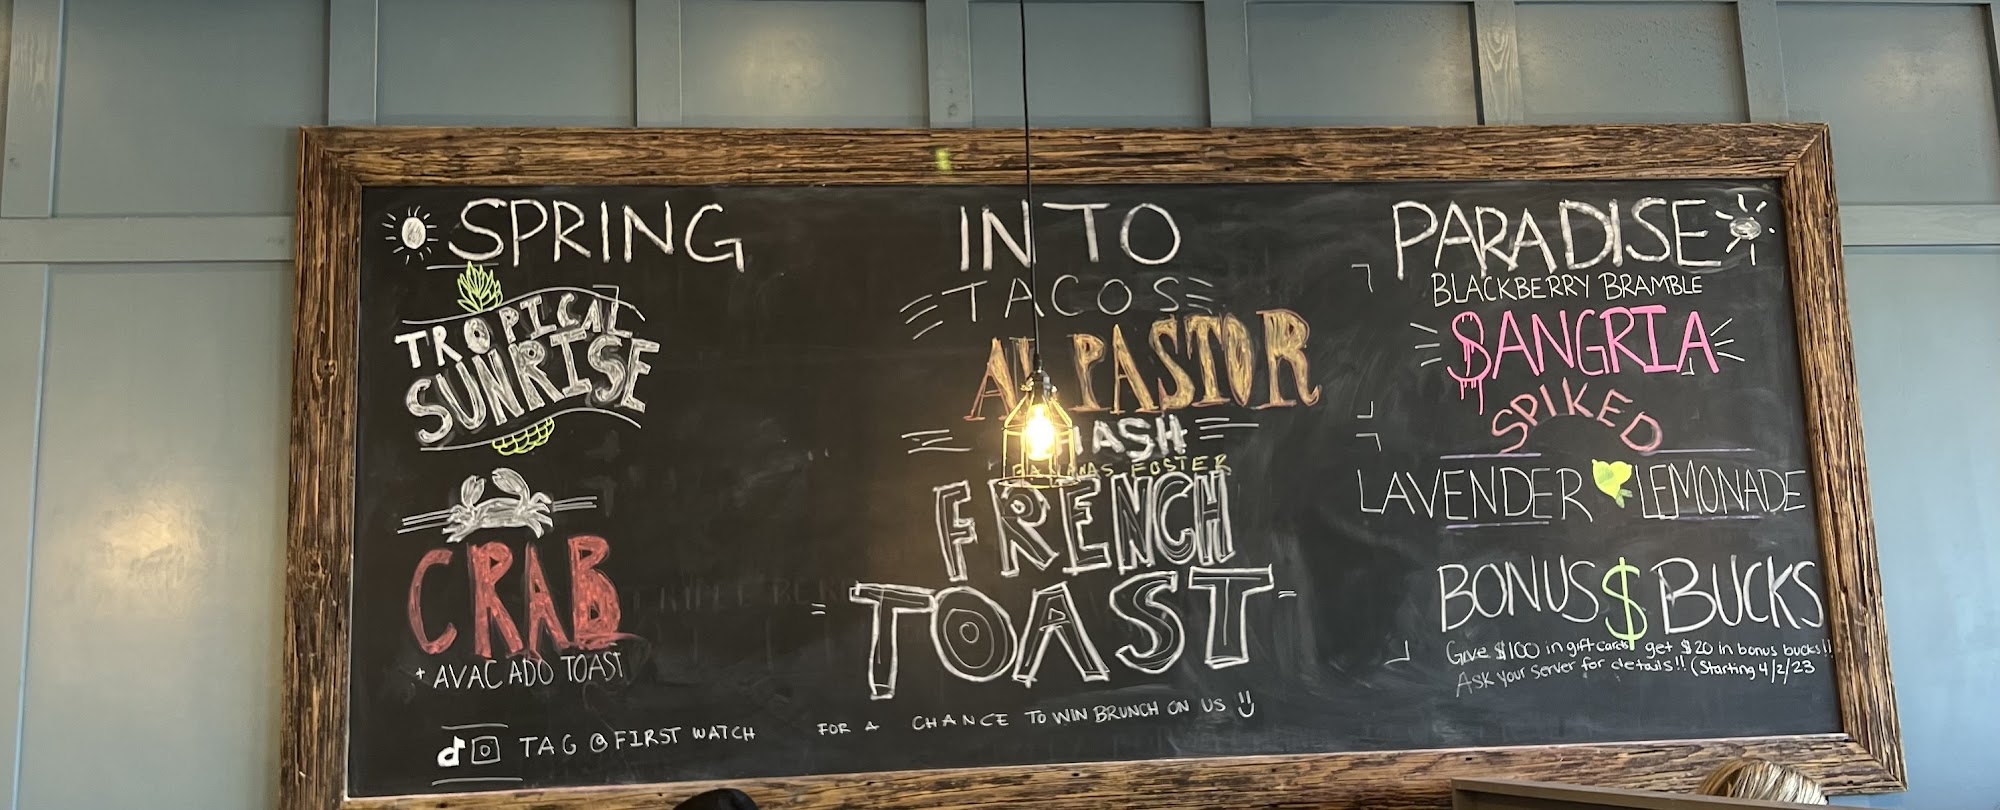 SPRING INTO PARADISE
TROPICAL
SUNRISE
CRAB
+ AVACADO TOAST
TACOS
AL PASTOR
HASH
BANANAS FOSTER
FRENCH
TOAST
BLACKBERRY BRAMBLE
$ANGRIA
SPIKED
LAVENDER LEMONADE
BONUS $ BUCKS
Give $100 in gift cards, get $20 in bonus bucks!!
Ask your server for details!! (Starting 4/2/23
TAG @FIRST WATCH FOR A CHANCE TO WIN BRUNCH ON US